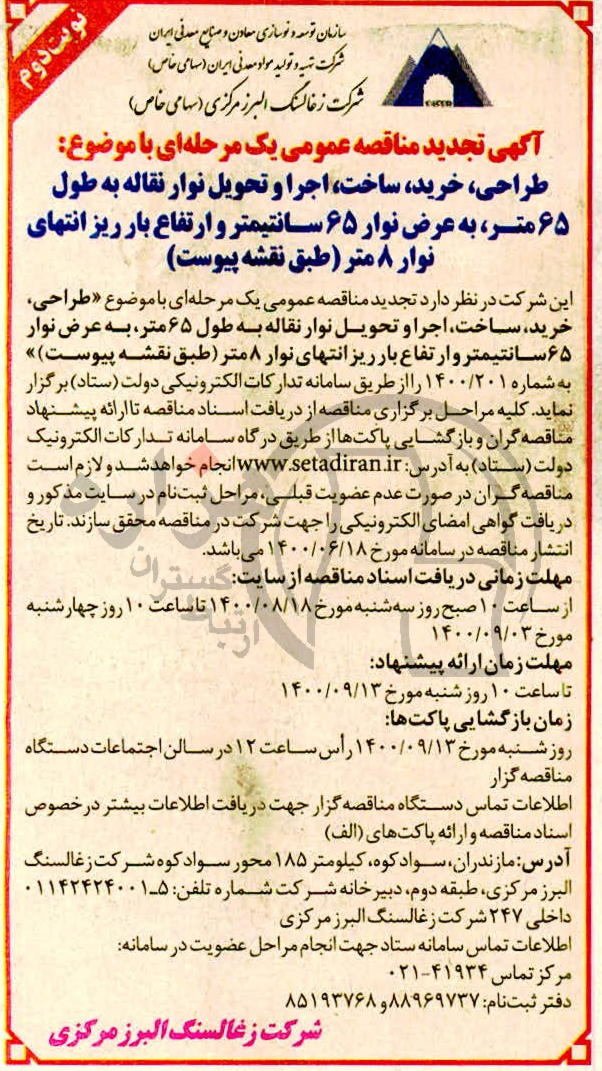 نوبت دوم
سازمان توسعه و نوسازی معادن و صنایع معدنی ایران
شرکت تهیه و تولید مواد معدنی ایران (سهامی خاص)
شرکت زغالسنگ البرز مرکزی (سهامی خاص)
آگهی تجدید مناقصه عمومی یک مرحله‌ای با موضوع:
طراحی، خرید، ساخت، اجرا و تحویل نوار نقاله به طول
۶۵ متر، به عرض نوار ۶۵ سانتیمتر و ارتفاع بار ریز انتهای
نوار ۸ متر (طبق نقشه پیوست)
این شرکت در نظر دارد تجدید مناقصه عمومی یک مرحله‌ای با موضوع «طراحی،
خرید، ساخت، اجرا و تحویل نوار نقاله به طول ۶۵ متر، به عرض نوار
۶۵ سانتیمتر و ارتفاع بار ریز انتهای نوار ۸ متر (طبق نقشه پیوست)»
به شماره ۱۴۰۰/۲۰۱ را از طریق سامانه تدارکات الکترونیکی دولت (ستاد) برگزار
نماید. کلیه مراحل برگزاری مناقصه از دریافت اسناد مناقصه تا ارائه پیشنهاد
مناقصه‌گران و بازگشایی پاکت‌ها از طریق درگاه سامانه تدارکات الکترونیک
دولت (ستاد) به آدرس: www.setadiran.ir انجام خواهد شد و لازم است
مناقصه‌گران در صورت عدم عضویت قبلی، مراحل ثبت‌نام در سایت مذکور و
دریافت گواهی امضای الکترونیکی را جهت شرکت در مناقصه محقق سازند. تاریخ
انتشار مناقصه در سامانه مورخ ۱۴۰۰/۰۶/۱۸ می‌باشد.
مهلت زمانی دریافت اسناد مناقصه از سایت:
از ساعت ۱۰ صبح روز سه‌شنبه مورخ ۱۴۰۰/۰۸/۱۸ تا ساعت ۱۰ روز چهارشنبه
مورخ ۱۴۰۰/۰۹/۰۳
مهلت زمان ارائه پیشنهاد:
تا ساعت ۱۰ روز شنبه مورخ ۱۴۰۰/۰۹/۱۳
زمان بازگشایی پاکت‌ها:
روز شنبه مورخ ۱۴۰۰/۰۹/۱۳ رأس ساعت ۱۲ در سالن اجتماعات دستگاه
مناقصه گزار
اطلاعات تماس دستگاه مناقصه گزار جهت دریافت اطلاعات بیشتر در خصوص
اسناد مناقصه و ارائه پاکت‌های (الف)
آدرس: مازندران، سوادکوه، کیلومتر ۱۸۵ محور سوادکوه شرکت زغالسنگ
البرز مرکزی، طبقه دوم، دبیرخانه شرکت شماره تلفن: ۵ـ۰۱۱۴۲۴۲۴۰۰۱
داخلی ۲۴۷ شرکت زغالسنگ البرز مرکزی
اطلاعات تماس سامانه ستاد جهت انجام مراحل عضویت در سامانه:
مرکز تماس ۴۱۹۳۴-۰۲۱
دفتر ثبت‌نام: ۸۸۹۶۹۷۳۷ و ۸۵۱۹۳۷۶۸
شرکت زغالسنگ البرز مرکزی